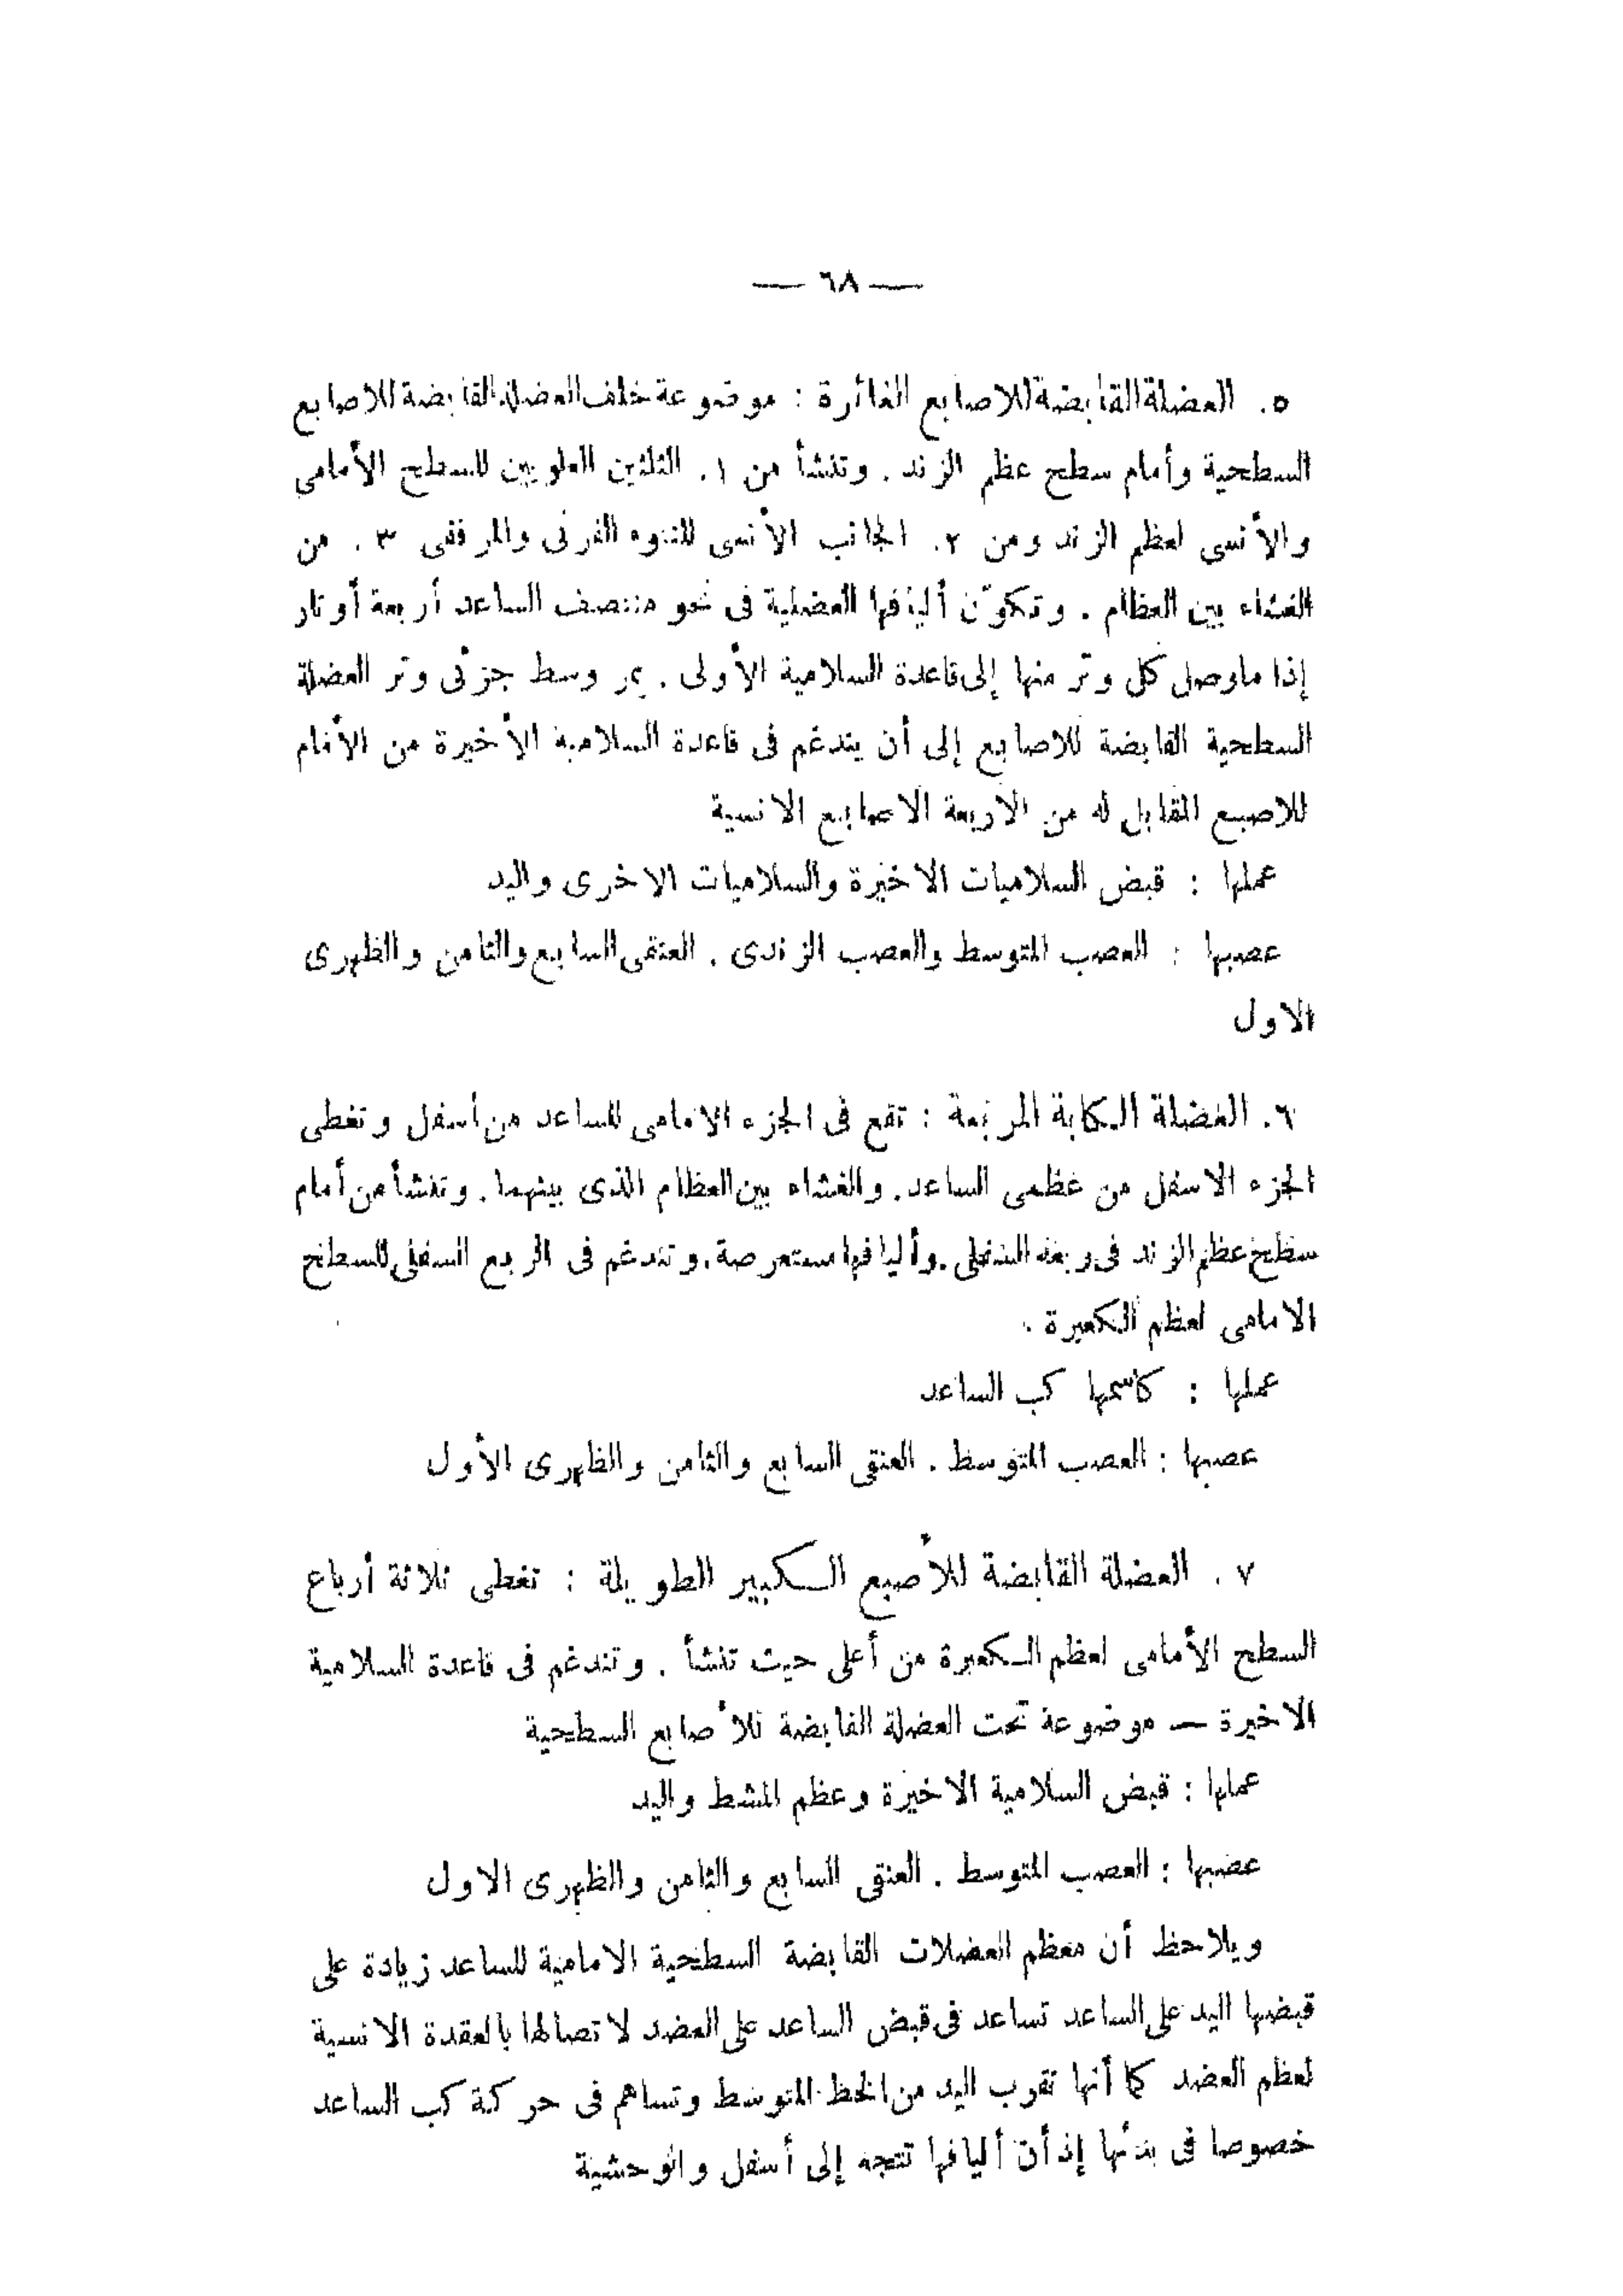 — ٦٨ —
٥. العضلة القابضة للاصابع الغائرة : موضوعة خلف العضلة القابضة للاصابع
السطحية وأمام سطح عظم الزند . وتنشأ من ١. الثلثين العلويين للسطح الأمامى
والأنسى لعظم الزند ومن ٢. الجانب الأنسى للنتوء القرنى والمرفقى ٣. من
الغشاء بين العظام . وتكوّن أليافها العضلية فى نحو منتصف الساعد أربعة أوتار
إذا ماوصل كل وتر منها إلى قاعدة السلامية الأولى . يمر وسط جزئى وتر العضلة
السطحية القابضة للاصابع إلى أن يندغم فى قاعدة السلامية الأخيرة من الأمام
للاصبع المقابل له من الأربعة الاصابع الانسية
عملها : قبض السلاميات الاخيرة والسلاميات الاخرى واليد
عصبها : العصب المتوسط والعصب الزندى . العنقى السابع والثامن والظهرى
الاول
٦. العضلة الكابة المربعة : تقع فى الجزء الامامى للساعد من أسفل وتغطى
الجزء الاسفل من عظمى الساعد. والغشاء بين العظام الذى بينهما. وتنشأ من أمام
سطح عظم الزند فى ربعه السفلى. وأليافها مستعرضة. وتندغم فى الربع السفلى للسطح
الامامى لعظم الكعبرة .
عملها : كاسمها كب الساعد
عصبها : العصب المتوسط . العنقى السابع والثامن والظهرى الأول
٧ . العضلة القابضة للأصبع الكبير الطويلة : تغطى ثلاثة أرباع
السطح الأمامى لعظم الكعبرة من أعلى حيث تنشأ . وتندغم فى قاعدة السلامية
الاخيرة — موضوعة تحت العضلة القابضة للأصابع السطحية
عملها : قبض السلامية الاخيرة وعظم المشط واليد
عصبها : العصب المتوسط . العنقى السابع والثامن والظهرى الاول
ويلاحظ أن معظم العضلات القابضة السطحية الامامية للساعد زيادة على
قبضها اليد على الساعد تساعد فى قبض الساعد على العضد لاتصالها بالعقدة الانسية
لعظم العضد كما أنها تقرب اليد من الخط المتوسط وتساهم فى حركة كب الساعد
خصوصا فى بدئها إذ أن أليافها تتجه إلى أسفل والوحشية